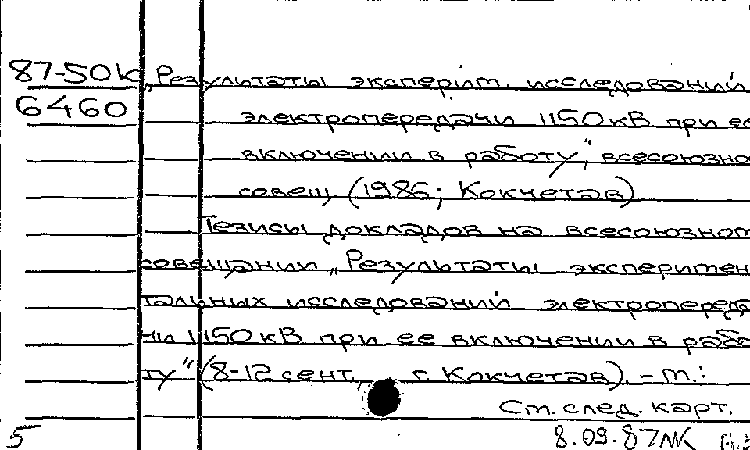 87-50к „Результаты эксперим. исследований
6460 электропередачи 1150 кВ при ее
включении в работу", всесоюзно
совещ (1986; Кокчетав)
Тезисы докладов на всесоюзном
совещании „Результаты эксперимен
тальных исследований электропереда
чи 1150 кВ при ее включении в рабо
ту" (8-12 сент., г. Кокчетав). - М.:
См. след. карт.
5 8.09.87